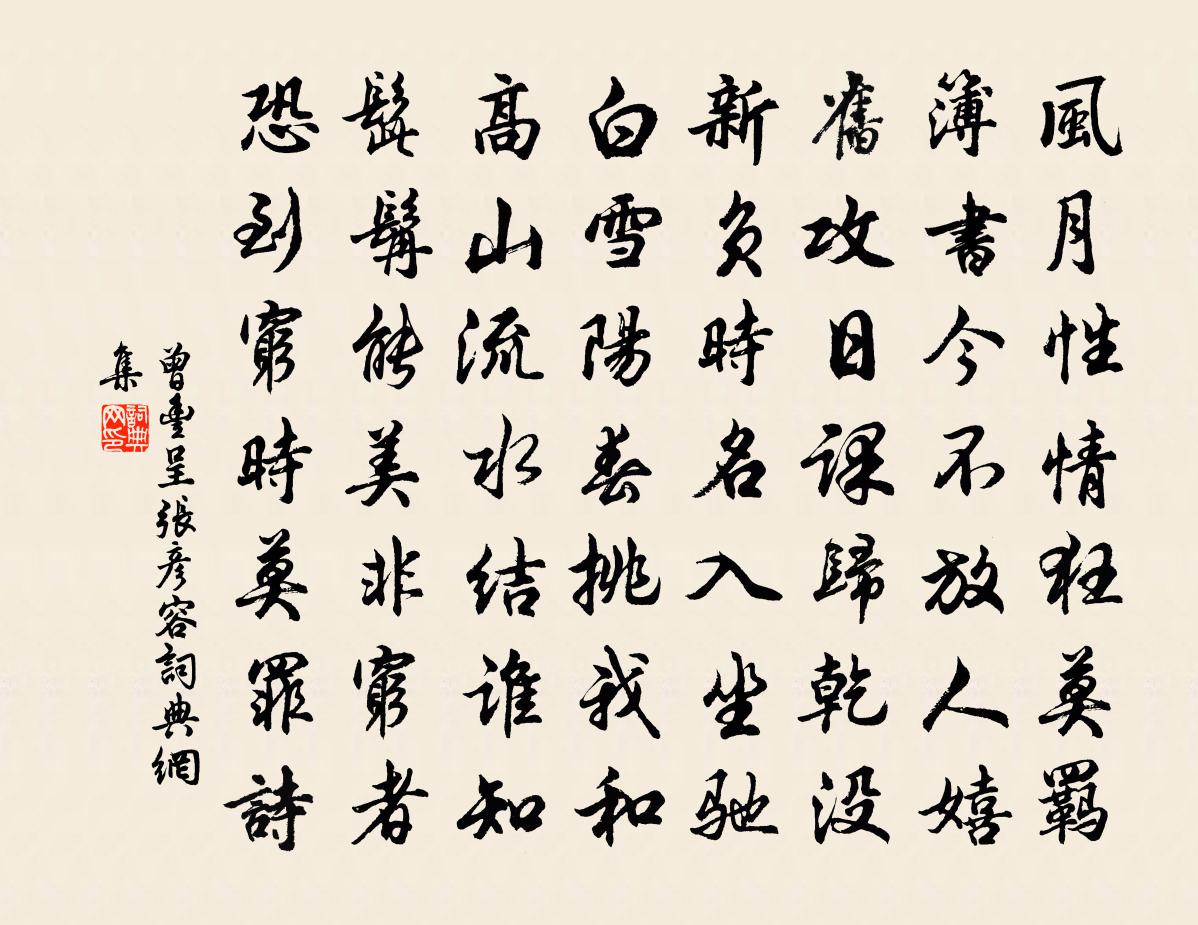 風月性情狂莫羈
簿書今不放人嬉
舊攻日課歸乾没
新負時名入坐馳
白雪陽春挑我和
高山流水结谁知
髭髯能美非窮者
恐到窮時莫罪詩
曾豊呈張彥容詞典網
集
詞典网印